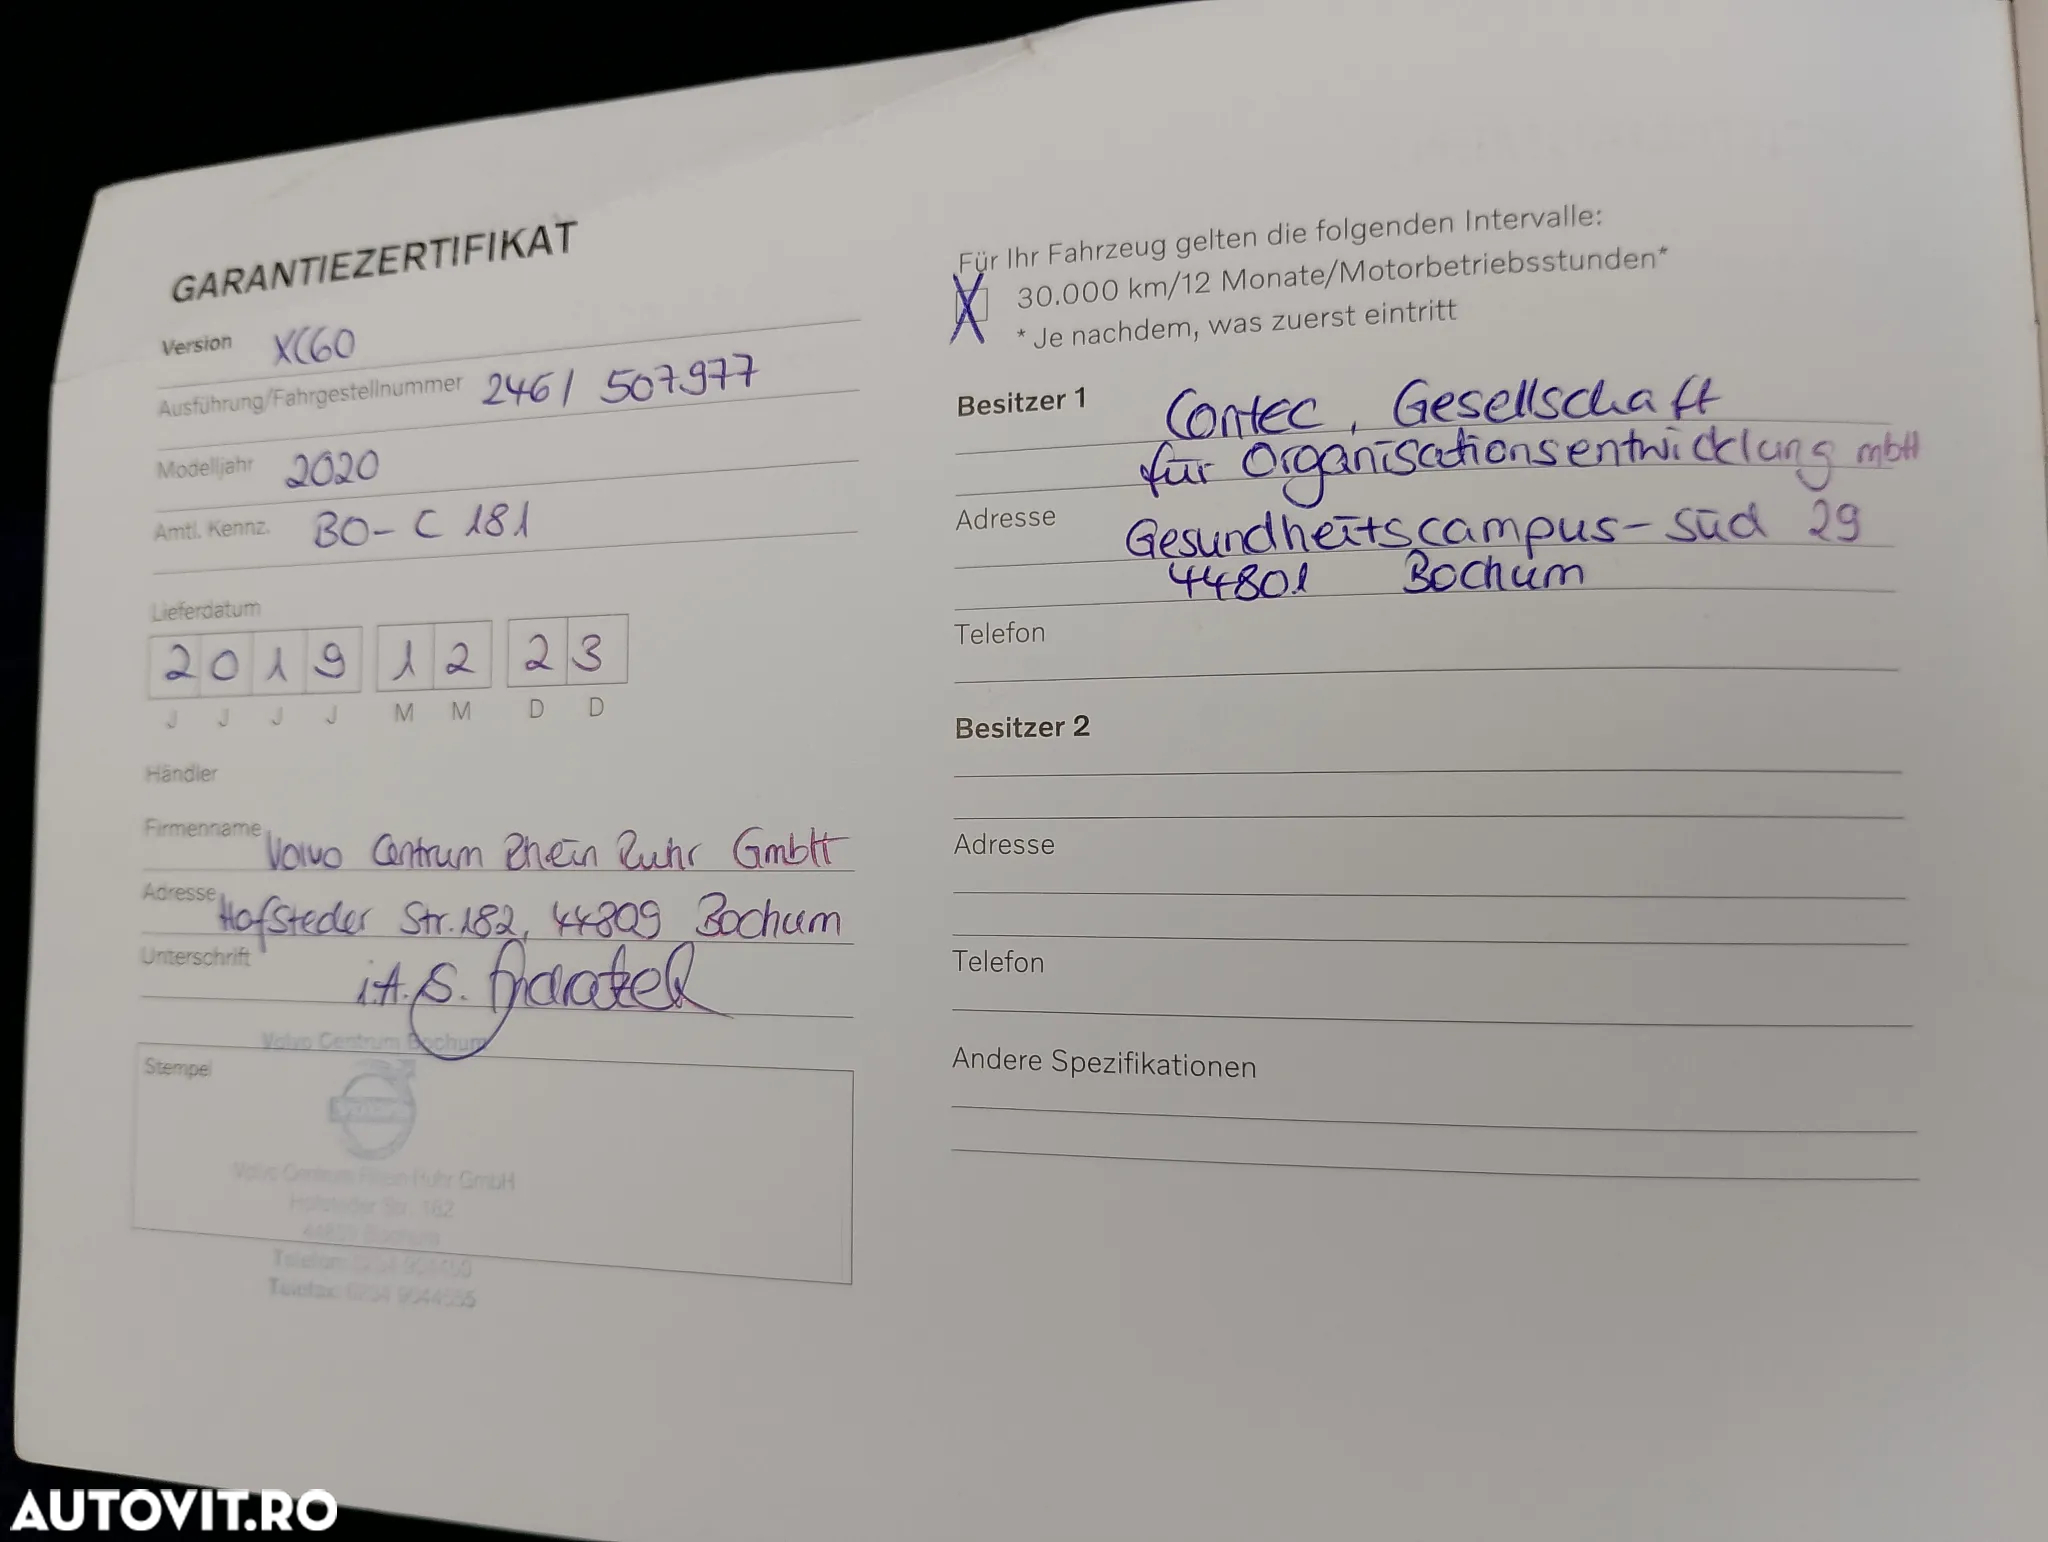 GARANTIEZERTIFIKAT
Version XC60
Ausführung/Fahrgestellnummer 246 / 507977
Modelljahr 2020
Amtl. Kennz. BO - C 181
Lieferdatum
2 0 1 9 1 2 2 3
J J J J M M D D
Händler
Firmenname Volvo Centrum Rhein Ruhr GmbH
Adresse Hofsteder Str. 182, 44809 Bochum
Unterschrift i.A. S.
Volvo Centrum Bochum
Stempel
Volvo Centrum Rhein Ruhr GmbH
Hofsteder Str. 182
44809 Bochum
Telefon:
Telefax: 0234
Für Ihr Fahrzeug gelten die folgenden Intervalle:
X 30.000 km/12 Monate/Motorbetriebsstunden*
* Je nachdem, was zuerst eintritt
Besitzer 1 Contec, Gesellschaft
für Organisationsentwicklung mbH
Adresse Gesundheitscampus - Süd 29
44801 Bochum
Telefon
Besitzer 2
Adresse
Telefon
Andere Spezifikationen
AUTOVIT.RO